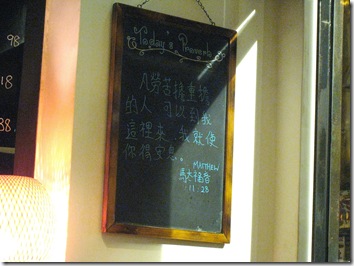 98
88.
Today's Proverb
凡勞苦擔重擔
的人 可以到我
這裡來 我就使
你得安息。
MATTHEW
馬太福音
11.28